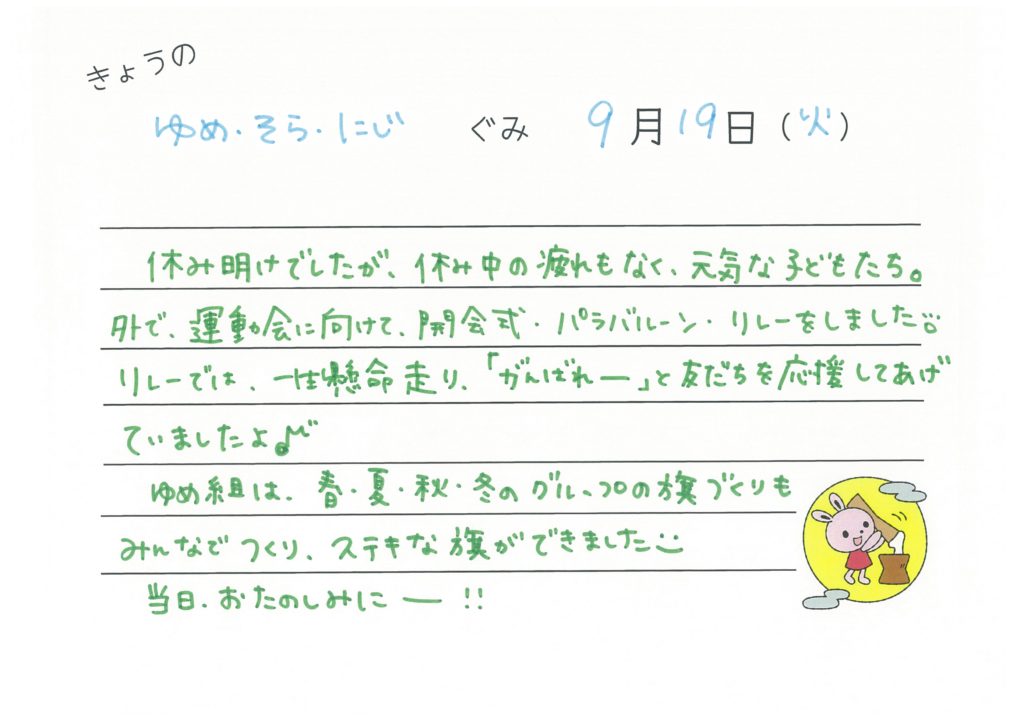 きょうの
ゆめ・そら・にじ ぐみ 9月19日(火)
休み明けでしたが、休み中の疲れもなく、元気な子どもたち。
外で、運動会に向けて、開会式・パラバルーン・リレーをしました
リレーでは、一生懸命走り、「がんばれー」と友だちを応援してあげ
ていましたよ♪
ゆめ組は、春・夏・秋・冬のグループの旗づくりも
みんなでつくり、ステキな旗ができました
当日、おたのしみにー!!